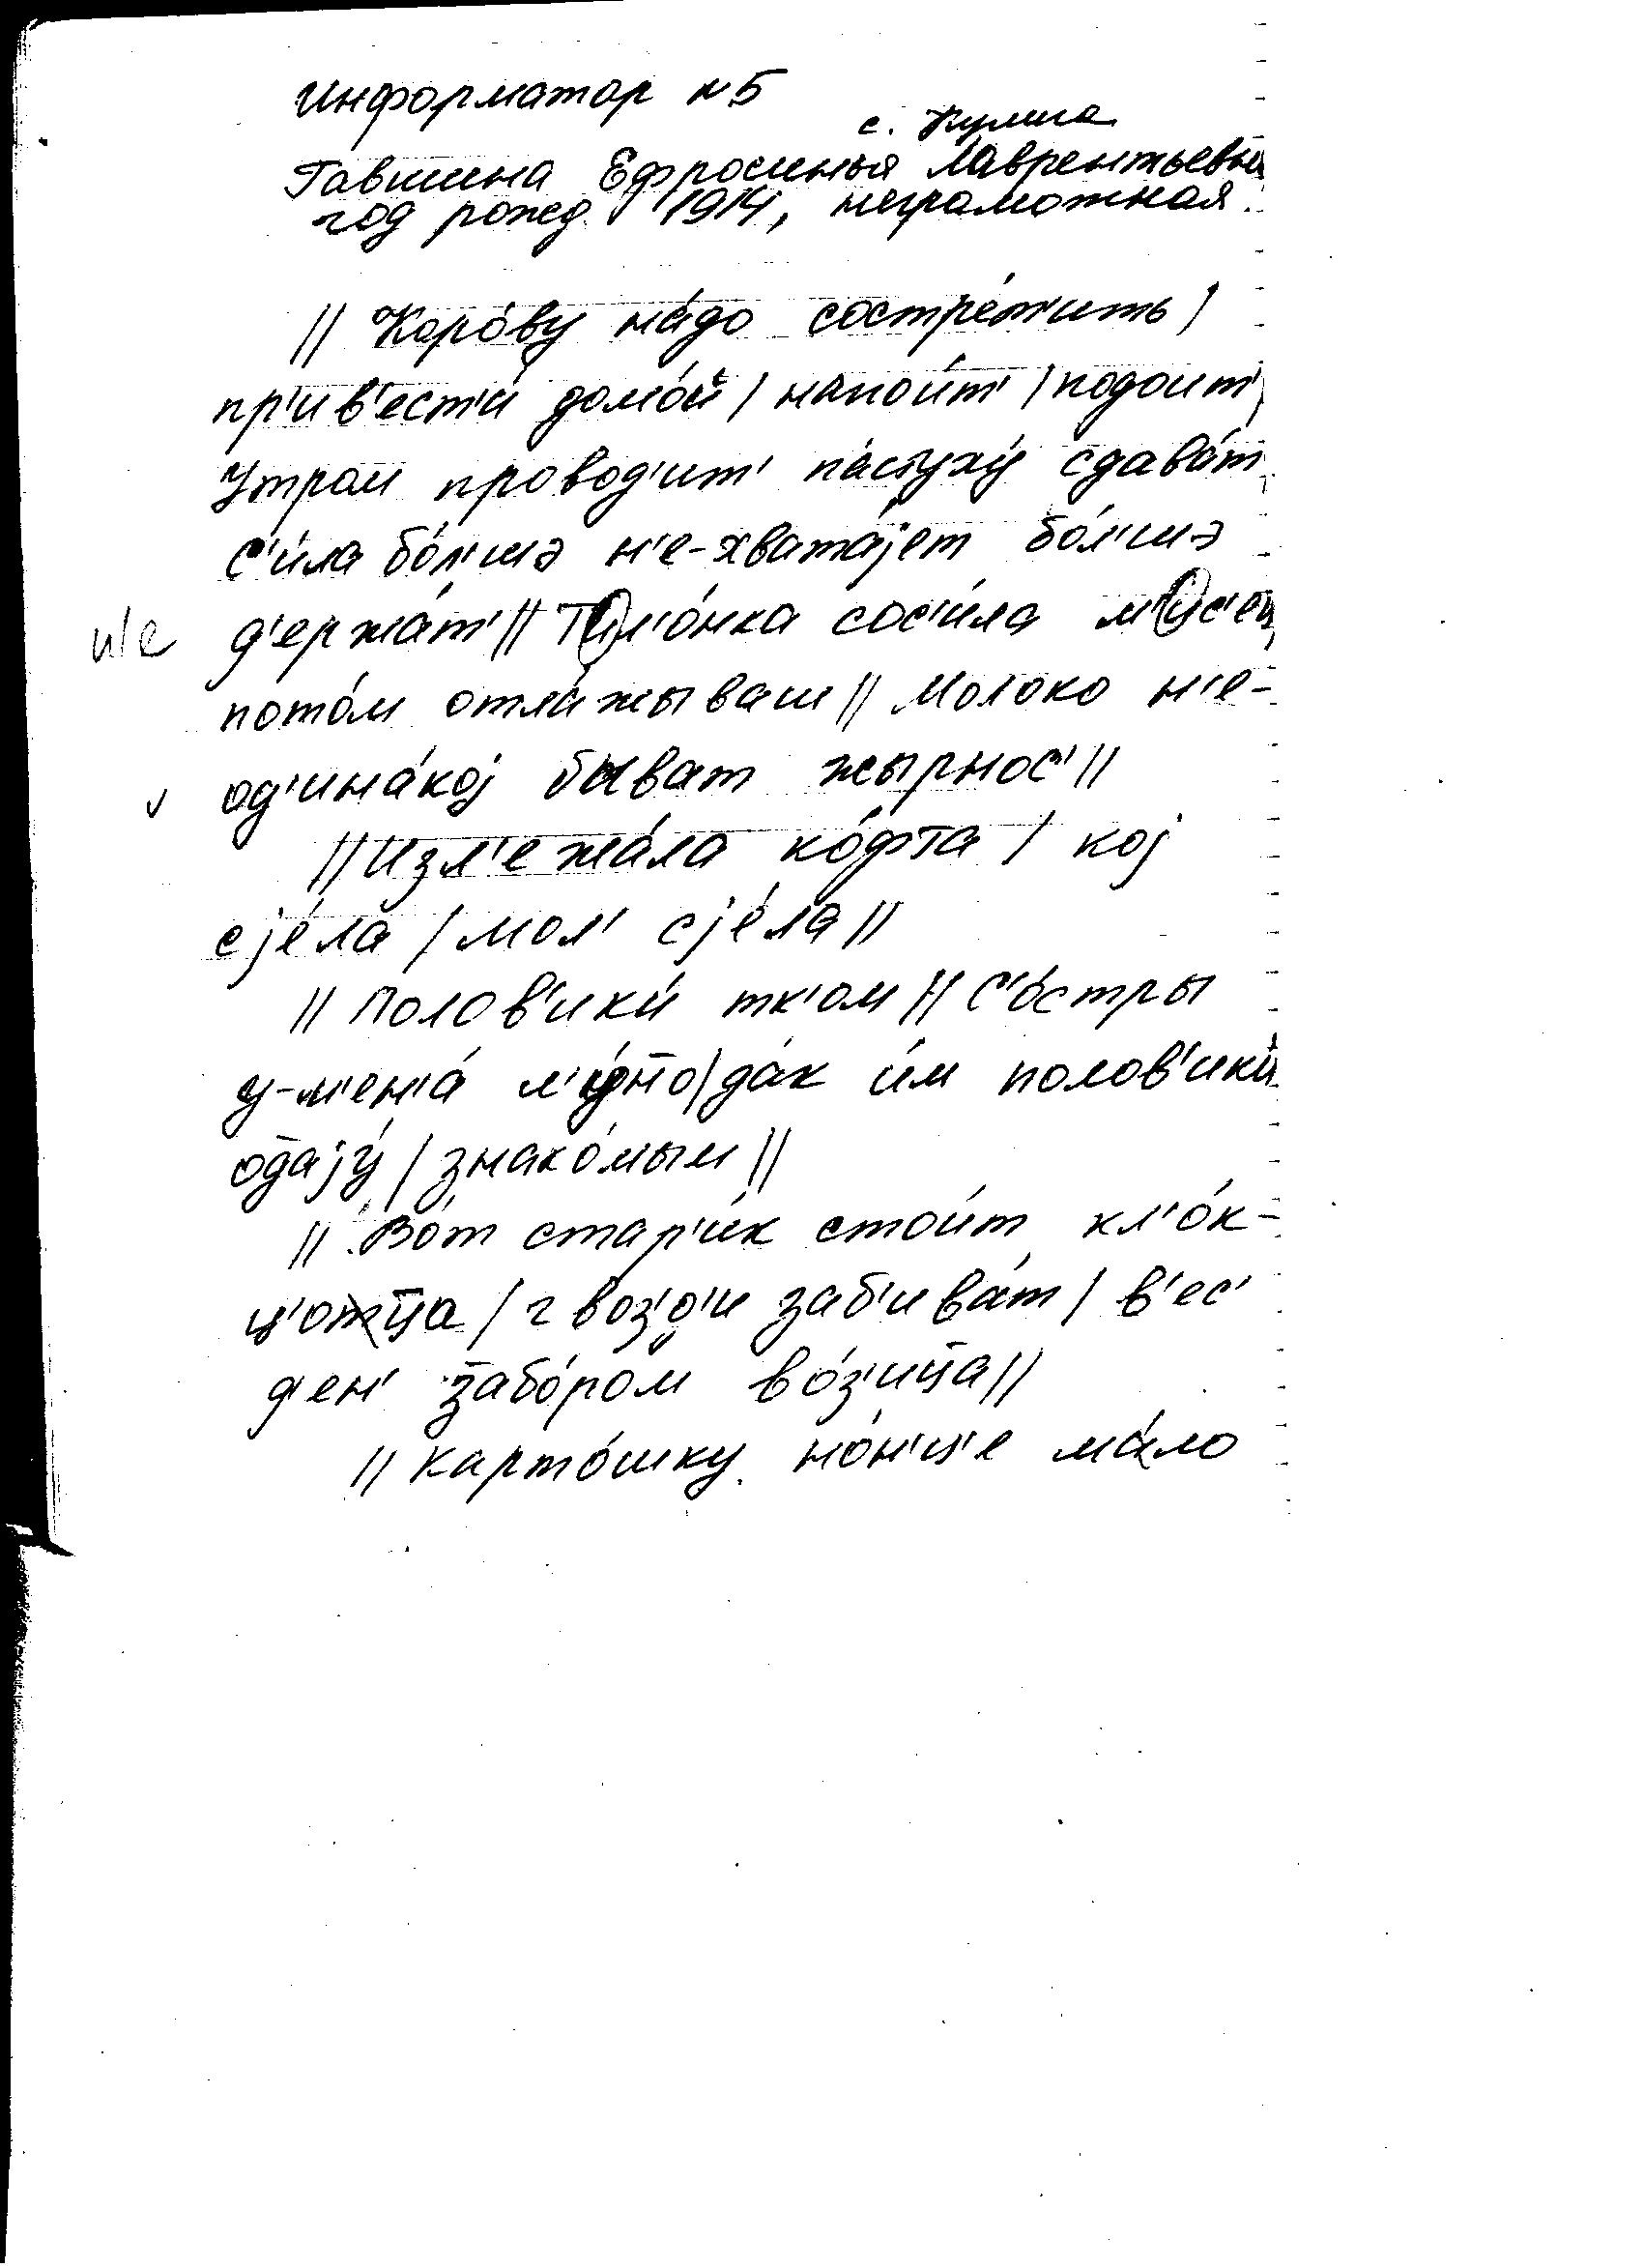 Информатор №5
с. Кулига
Гавшина Ефросинья Лаврентьевна
год рожд. 1914, неграмотная.
|| Коро́ву на́до состре́тить |
пр'ив'ест'и́ домо́й | напои́т' | подоит' |
Утром провод'ит' пастуху́ сдава́т'
с'и́ла бо́л'шэ н'е-хвата́јет бо́л'шэ
и/е д'ержа́т' || Т'ил'о́нка сос'и́ла м'ис'ец
пото́м отла́жываш || Молоко н'е-
од'ина́кој быват жырнос' ||
|| Изл'ежа́ла ко́фта | кој
сје́ла | мол' сје́ла ||
|| Полов'ики́ тк'ом || С'о́стры
у-м'ен'а́ л'у́т̅о | да́к и́м полов'ики́
од̅ају́ | знако́мым ||
|| Во́т стар'и́к стои́т кл'о́к-
ц'оц̅а | гвоз'д'и заб'ива́т | в'ес'
д'ен' забо́ром во́з'иц̅а ||
|| Карто́шку но́н'ц'е ма́ло